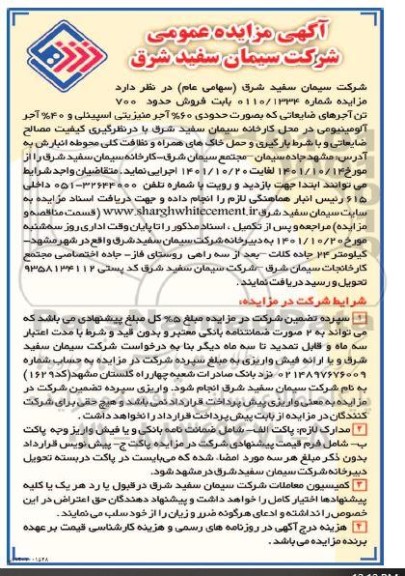 آگهی مزایده عمومی
شرکت سیمان سفید شرق
شرکت سیمان سفید شرق (سهامی عام) در نظر دارد
مزایده شماره ۰۱۱۰/۱۳۳۴ بابت فروش حدود ۷۰۰
تن آجرهای ضایعاتی که بصورت حدودی ۶۰% آجر منیزیتی اسپینلی و ۴۰% آجر
آلومینیومی در محل کارخانه سیمان سفید شرق با درنظرگیری کیفیت مصالح
ضایعاتی و با شرط بارگیری و حمل خاک های همراه و نظافت کلی محوطه انبارش به
آدرس: مشهد جاده سیمان – مجتمع سیمان شرق-کارخانه سیمان سفید شرق را از
مورخ ۱۴۰۱/۱۰/۱۳ لغایت ۱۴۰۱/۱۰/۲۰ اجرایی نماید. متقاضیان واجد شرایط
می توانند ابتدا جهت بازدید و رویت با شماره تلفن ۳۲۶۲۴۰۰۰-۰۵۱ داخلی
۶۱۵ رئیس انبار هماهنگی لازم را انجام داده و جهت دریافت اسناد مزایده به
سایت سیمان سفید شرق www.sharghwhitecement.ir (قسمت مناقصه و
مزایده) مراجعه و پس از تکمیل، اسناد مذکور را تا پایان وقت اداری روز سه‌شنبه
مورخ ۱۴۰۱/۱۰/۲۰ به دبیرخانه شرکت سیمان سفید شرق واقع در شهر مشهد-
کیلومتر ۲۴ جاده کلات – بعد از سه راهی روستای فاز- جاده اختصاصی مجتمع
کارخانجات سیمان شرق – شرکت سیمان سفید شرق کد پستی ۹۳۵۸۱۳۴۱۱۲
تحویل و رسید دریافت نمایند.
شرایط شرکت در مزایده:
۱ سپرده تضمین شرکت در مزایده مبلغ ۵% کل مبلغ پیشنهادی می باشد که
می تواند به ۲ صورت ضمانتنامه بانکی معتبر و بدون قید و شرط با مدت اعتبار
سه ماه و قابل تمدید تا سه ماه دیگر بنا به درخواست شرکت سیمان سفید
شرق و یا ارائه فیش واریزی به مبلغ سپرده شرکت در مزایده به حساب شماره
۰۲۱۴۸۹۷۶۷۶۰۰۹ نزد بانک صادرات شعبه چهارراه گلستان مشهد(کد۱۶۲۹)
به نام شرکت سیمان سفید شرق انجام شود. واریزی سپرده تضمین شرکت در
مزایده به معنی واریزی پیش پرداخت قرارداد نمی باشد و هیچ حقی برای شرکت
کنندگان در مزایده از بابت پیش پرداخت قرارداد را نخواهد داشت.
۲ مدارک لازم: پاکت الف-شامل ضمانت نامه بانکی و یا فیش واریز وجه پاکت
ب- شامل فرم قیمت پیشنهادی شرکت در مزایده پاکت ج- پیش نویس قرارداد
بدون ذکر مبلغ هر سه مورد امضا شده که می‌بایست در پاکت دربسته تحویل
دبیرخانه شرکت سیمان سفید شرق در مشهد شود.
۳ کمیسیون معاملات شرکت سیمان سفید شرق در قبول یا رد هر یک یا کلیه
پیشنهادها اختیار کامل را خواهد داشت و پیشنهاد دهندگان حق اعتراض در این
خصوص را نداشته و ادعای هرگونه ضرر و زیان را از خود سلب می نمایند.
۴ هزینه درج آگهی در روزنامه های رسمی و هزینه کارشناسی قیمت بر عهده
برنده مزایده می باشد.